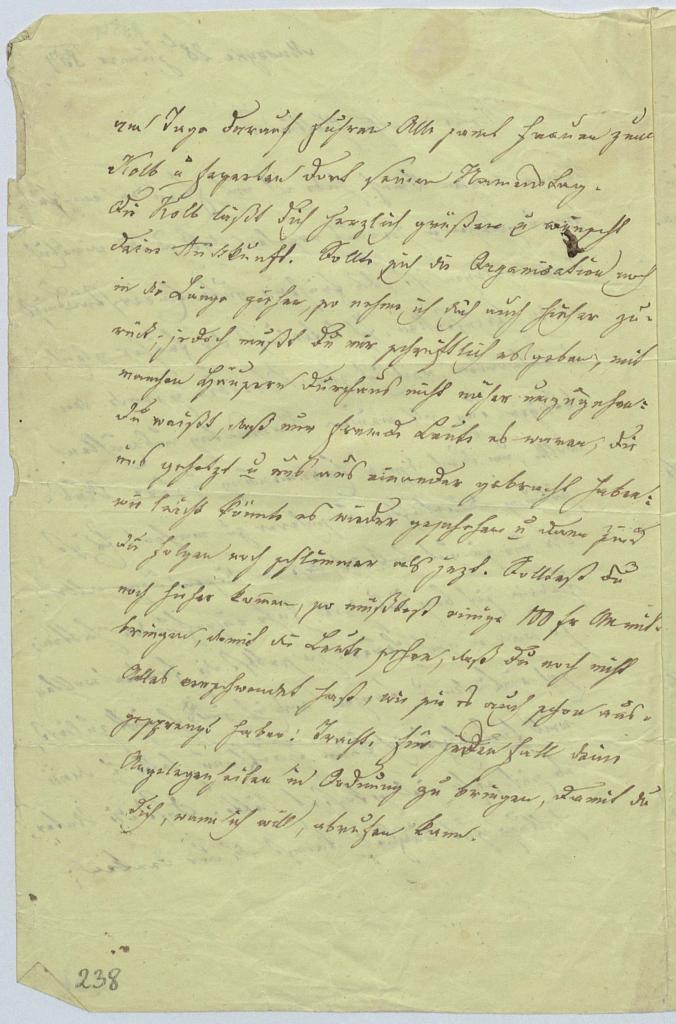 am Tage darauf fuhren Alle samt Frauen zum
Kolb u feyerten dort seinen Namenstag.
Die Kolb läßt dich herzlich grüßen u wünscht
deine Auskunft. Sollte sich die Organisation noch
in die Länge ziehen, so nehme ich dich auch hieher zu-
rück; jedoch mußt du mir schriftlich es geben, mit
manchen Häusern durchaus nicht näher umzugehen:
du weißt, daß nur fremde Leute es waren, die
uns gehetzt u uns aus einander gebracht haben:
wie leicht könnte es wieder geschehen u dann sind
die Folgen noch schlimmer als jezt. Solltest du
noch hieher kommen, so müßtest einige 100 fr mit-
bringen, damit die Leute sehen, daß du noch nicht
Alles verschwendet hast, wie sie es auch schon aus-
gesprengt haben: Trachte für jeden Fall deine
Angelegenheiten in Ordnung zu bringen, damit ich
dich, wann ich will, abrufen kann.
238